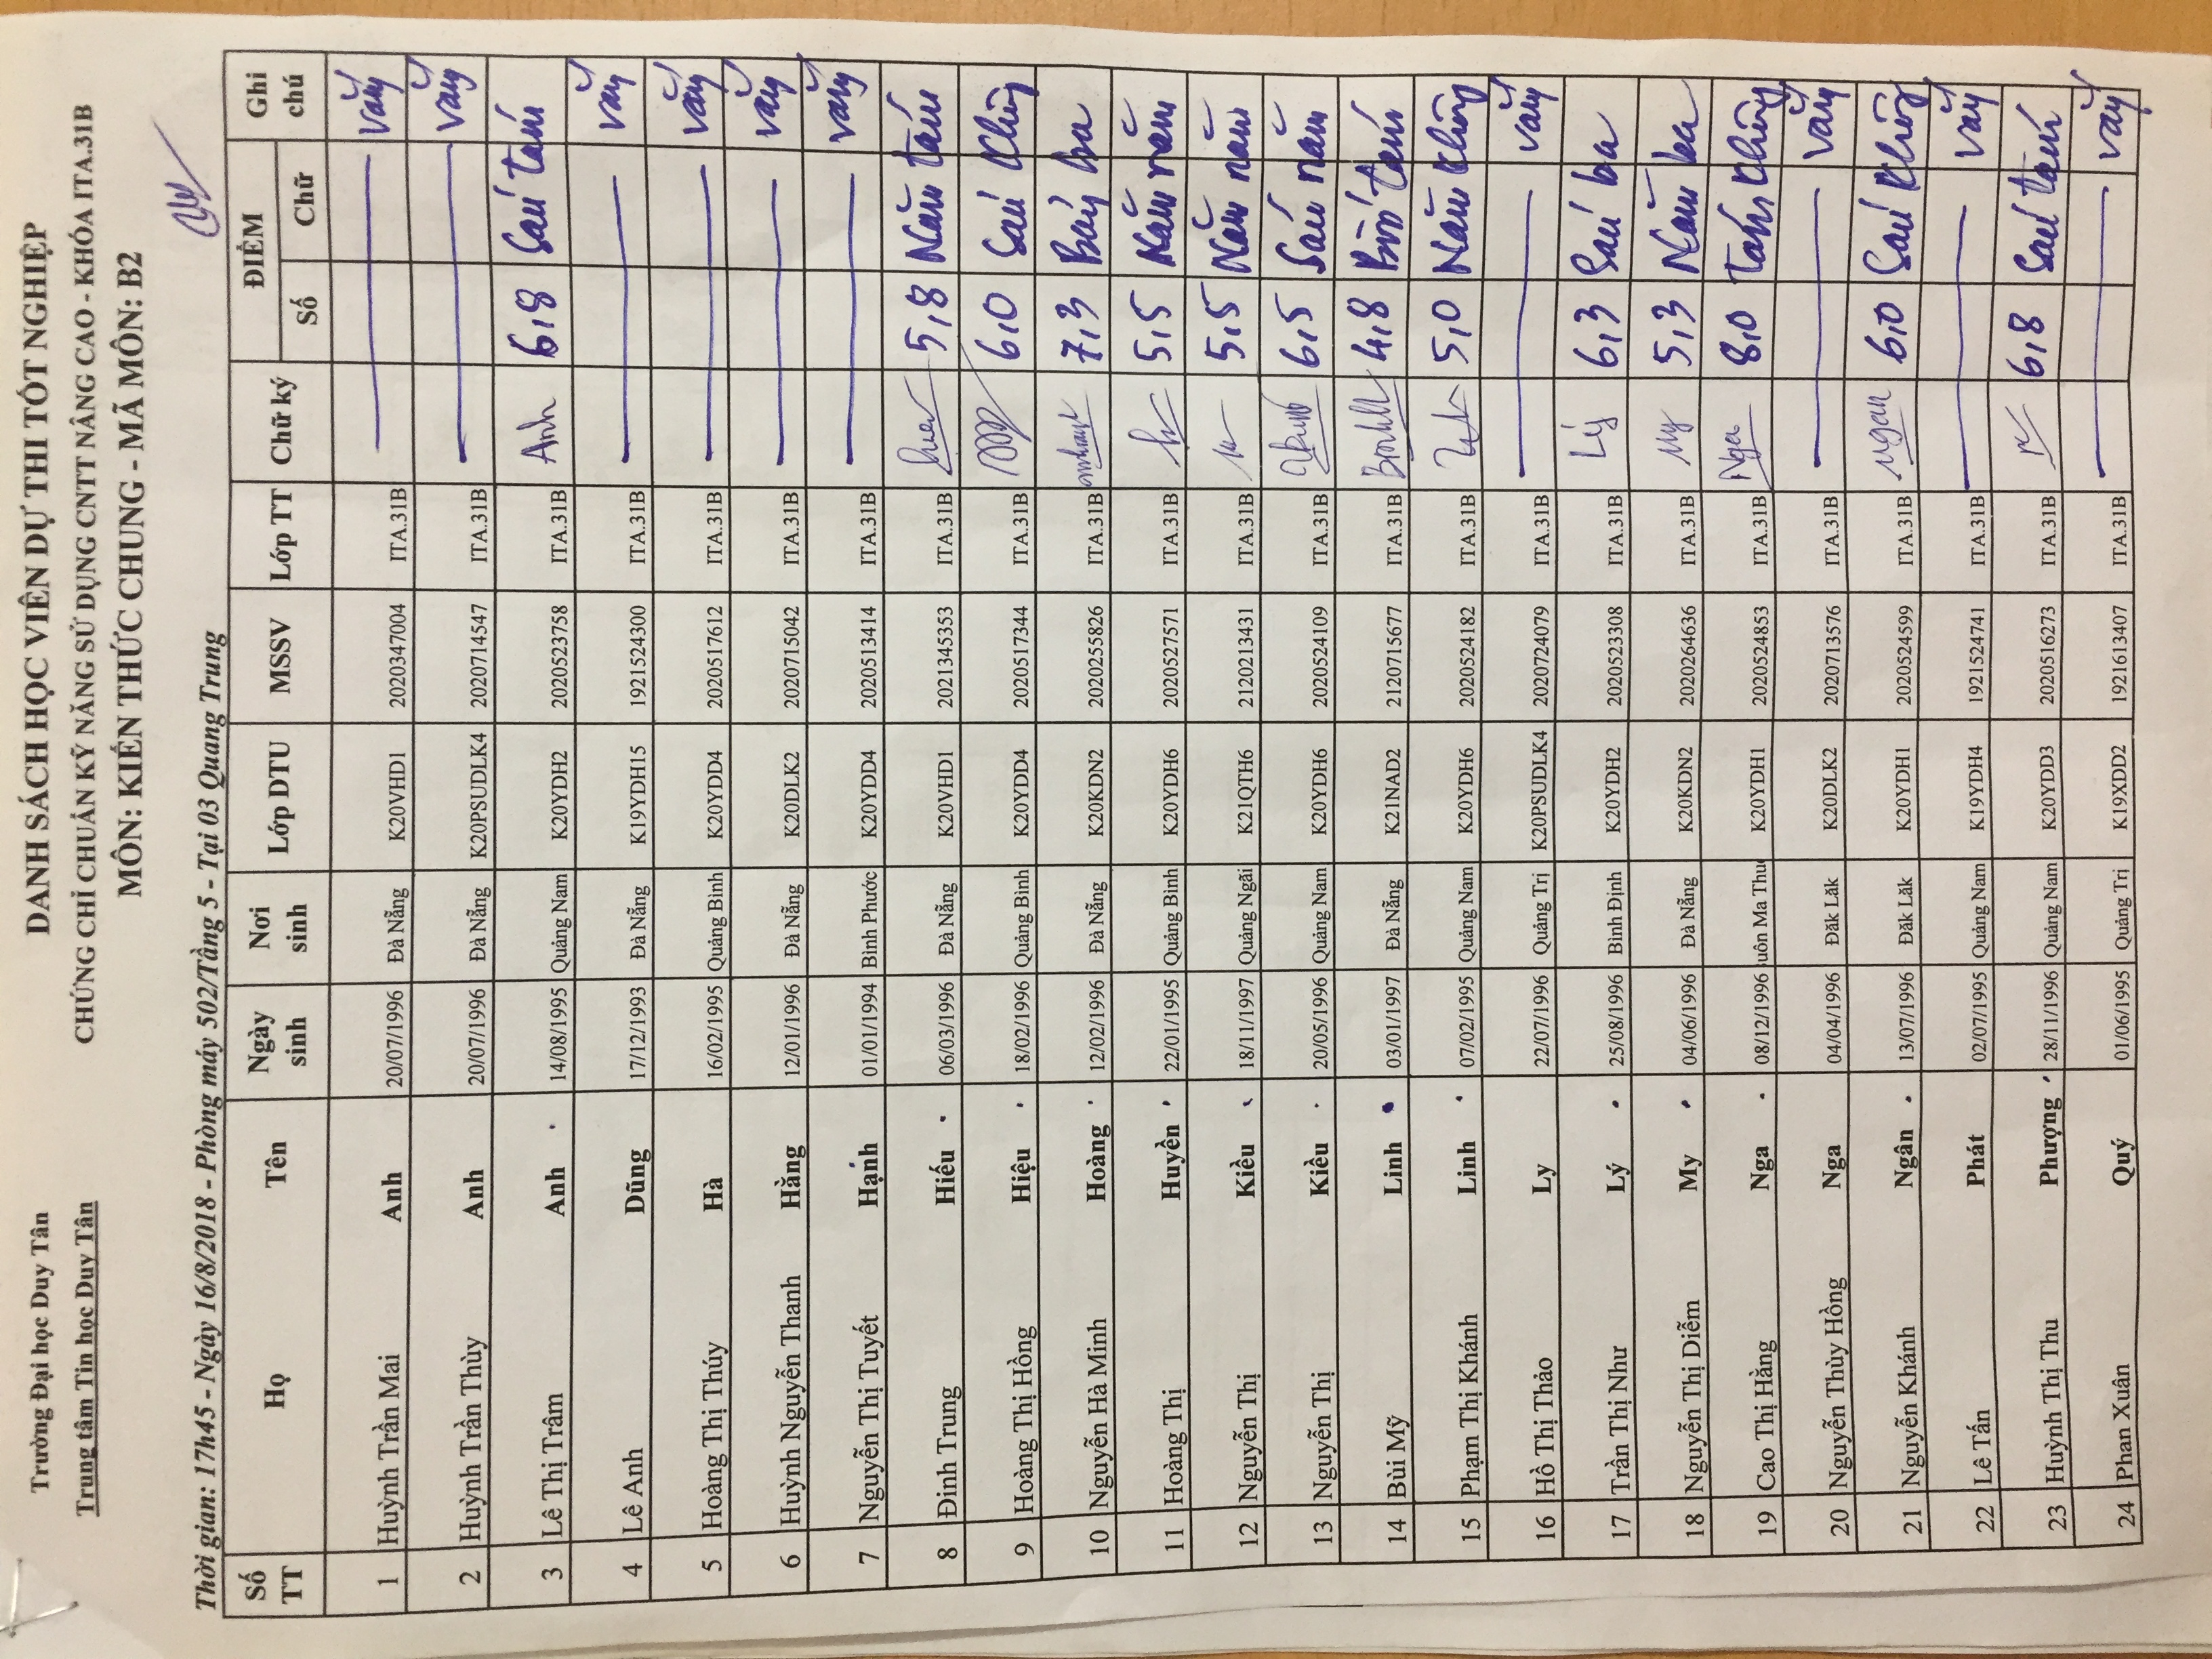 Trường Đại học Duy Tân
Trung tâm Tin học Duy Tân
DANH SÁCH HỌC VIÊN DỰ THI TỐT NGHIỆP
CHỨNG CHỈ CHUẨN KỸ NĂNG SỬ DỤNG CNTT NÂNG CAO - KHÓA ITA.31B
MÔN: KIẾN THỨC CHUNG - MÃ MÔN: B2
Thời gian: 17h45 - Ngày 16/8/2018 - Phòng máy 502/Tầng 5 - Tại 03 Quang Trung
Số TT Họ Tên Ngày sinh Nơi sinh Lớp DTU MSSV Lớp TT Chữ ký ĐIỂM Ghi chú
Số Chữ
1 Huỳnh Trần Mai Anh 20/07/1996 Đà Nẵng K20VHD1 2020347004 ITA.31B vắng
2 Huỳnh Trần Thùy Anh 20/07/1996 Đà Nẵng K20PSUDLK4 2020714547 ITA.31B vắng
3 Lê Thị Trâm Anh 14/08/1995 Quảng Nam K20YDH2 2020523758 ITA.31B Anh 6,8 Sáu tám
4 Lê Anh Dũng 17/12/1993 Đà Nẵng K19YDH15 1921524300 ITA.31B vắng
5 Hoàng Thị Thúy Hà 16/02/1995 Quảng Bình K20YDD4 2020517612 ITA.31B vắng
6 Huỳnh Nguyễn Thanh Hằng 12/01/1996 Đà Nẵng K20DLK2 2020715042 ITA.31B vắng
7 Nguyễn Thị Tuyết Hạnh 01/01/1994 Bình Phước K20YDD4 2020513414 ITA.31B vắng
8 Đinh Trung Hiếu 06/03/1996 Đà Nẵng K20VHD1 2021345353 ITA.31B 5,8 Năm tám
9 Hoàng Thị Hồng Hiệu 18/02/1996 Quảng Bình K20YDD4 2020517344 ITA.31B 6,0 Sáu không
10 Nguyễn Hà Minh Hoàng 12/02/1996 Đà Nẵng K20KDN2 2020255826 ITA.31B 7,3 Bảy ba
11 Hoàng Thị Huyền 22/01/1995 Quảng Bình K20YDH6 2020527571 ITA.31B 5,5 Năm năm
12 Nguyễn Thị Kiều 18/11/1997 Quảng Ngãi K21QTH6 2120213431 ITA.31B 5,5 Năm năm
13 Nguyễn Thị Kiều 20/05/1996 Quảng Nam K20YDH6 2020524109 ITA.31B 6,5 Sáu năm
14 Bùi Mỹ Linh 03/01/1997 Đà Nẵng K21NAD2 2120715677 ITA.31B 4,8 Bốn tám
15 Phạm Thị Khánh Linh 07/02/1995 Quảng Nam K20YDH6 2020524182 ITA.31B 5,0 Năm không
16 Hồ Thị Thảo Ly 22/07/1996 Quảng Trị K20PSUDLK4 2020724079 ITA.31B vắng
17 Trần Thị Như Lý 25/08/1996 Bình Định K20YDH2 2020523308 ITA.31B Lý 6,3 Sáu ba
18 Nguyễn Thị Diễm My 04/06/1996 Đà Nẵng K20KDN2 2020264636 ITA.31B My 5,3 Năm ba
19 Cao Thị Hằng Nga 08/12/1996 uôn Ma Thu K20YDH1 2020524853 ITA.31B Nga 8,0 Tám không
20 Nguyễn Thùy Hồng Nga 04/04/1996 Đăk Lăk K20DLK2 2020713576 ITA.31B vắng
21 Nguyễn Khánh Ngân 13/07/1996 Đăk Lăk K20YDH1 2020524599 ITA.31B Ngan 6,0 Sáu không
22 Lê Tấn Phát 02/07/1995 Quảng Nam K19YDH4 1921524741 ITA.31B vắng
23 Huỳnh Thị Thu Phượng 28/11/1996 Quảng Nam K20YDD3 2020516273 ITA.31B 6,8 Sáu tám
24 Phan Xuân Quý 01/06/1995 Quảng Trị K19XDD2 1921613407 ITA.31B vắng